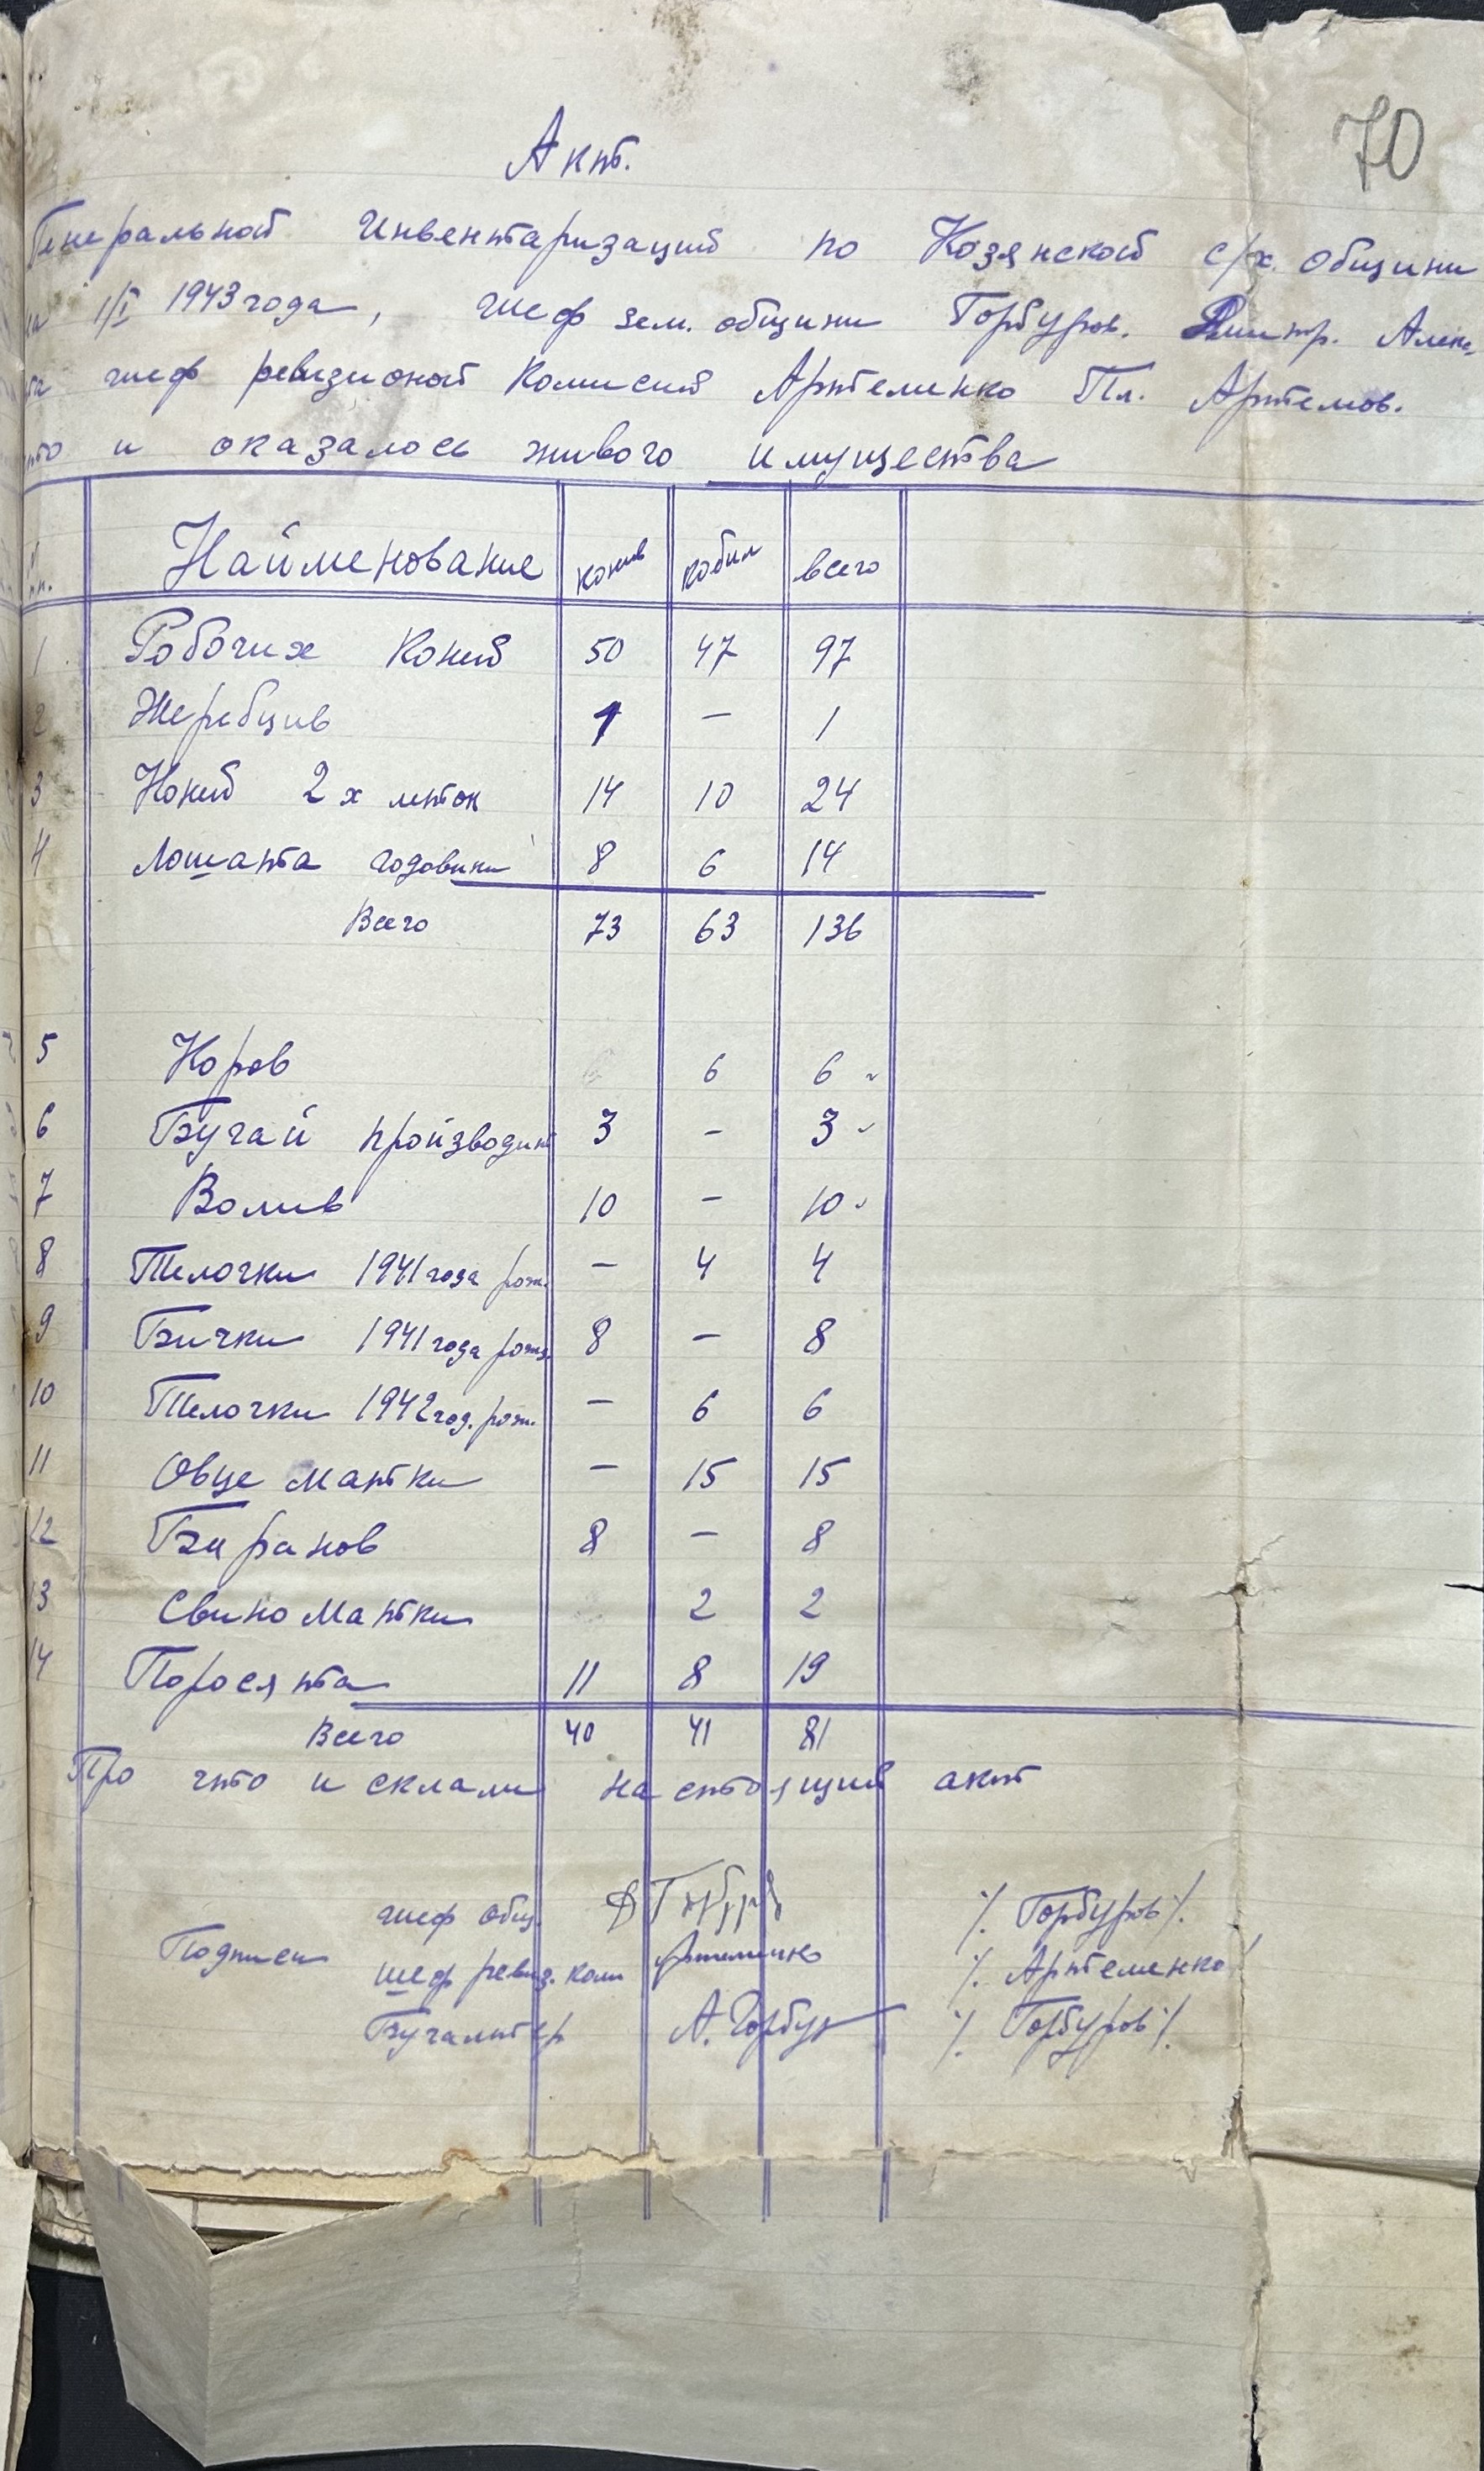 70
Акт.
Генеральной Инвентаризаций по Козянской с/х. общини
на 1/I 1943 года, шеф зем. общини Горбуров. Дмитр. Алекс.
та шеф ревизионой Комисий Артеменко Пл. Артемов.
што и оказалось живого имущества
№ пп. Найменование конив кобил всего
1 Робочих Коний 50 47 97
2 Жеребцив 1 — 1
3 Коний 2х леток 14 10 24
4 Лошата годовики 8 6 14
Всего 73 63 136
5 Коров 6 6
6 Бугай пройзводит 3 — 3
7 Волив 10 — 10
8 Телочки 1941 года рож. — 4 4
9 Бички 1941 года рожд. 8 — 8
10 Телочки 1942 год. рож. — 6 6
11 Овце матки — 15 15
12 Баранов 8 — 8
13 Свино Матки 2 2
14 Поросята 11 8 19
Всего 40 41 81
Про что и склали настоящий акт
шеф общ. /. Горбуров /.
Подписи шеф ревиз. ком Артеменко /. Артеменко /
Бугалтер А. Горбур /. Горбуров /.